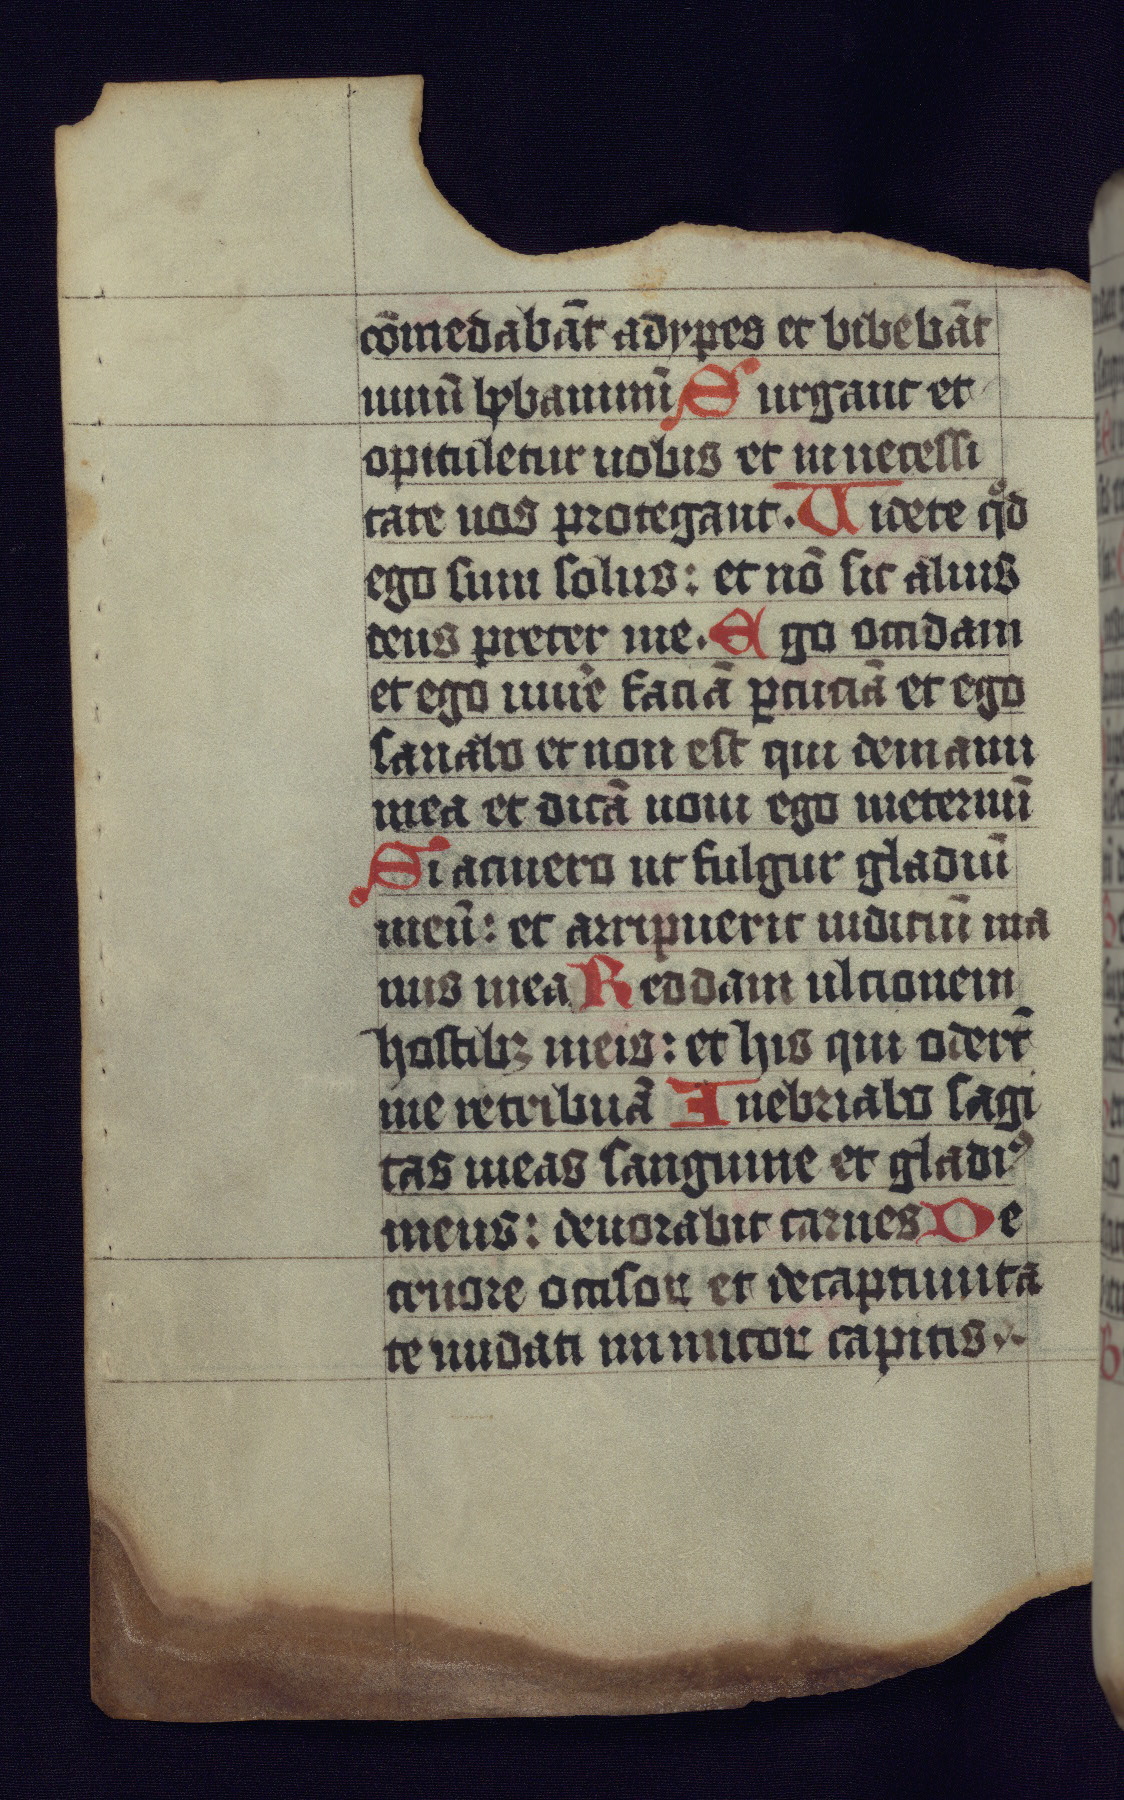 cōmedabāt adypes et bibebāt
uinū lybaminū Surgant et
opituletur uobis et in necessi
tate uos protegant. Videte qͦd
ego sum solus: et nō sit alius
deus preter me. Ego occidam
et ego uiuͤe faciā ꝑcuciā et ego
sanabo et non est qui demanu
mea et dicā uiuo ego ineternū
Si acuero ut fulgur gladiū
meū: et arripuerit iudiciū ma
nus mea Reddam ultionem
hostibꝫ meis: et his qui odert̄
me retribuā Inebriabo sagi
tas meas sanguine et gladiꝰ
meus: deuorabit carnes De
cruore occisoꝝ et decaptiuita
te nudati inimicoꝝ capitis.